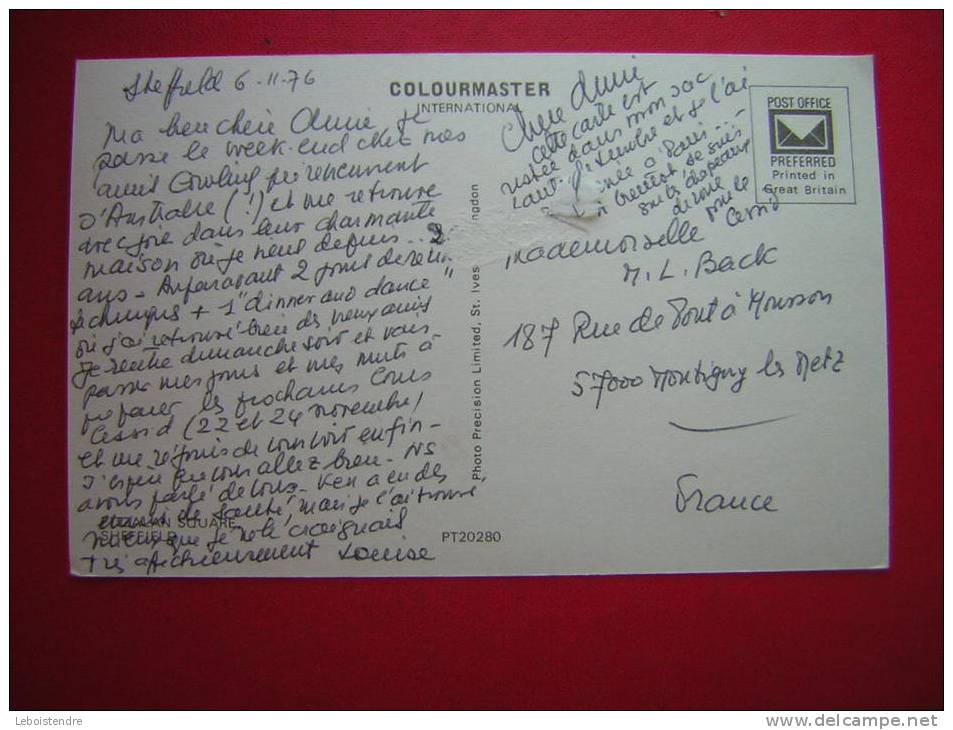 Sheffield 6-11-76
Ma bien chère Annie je
passe le week-end chez mes
amis Cowling
d'Australie (!) et me retrouve
avec joie dans leur charmante
maison où je viens depuis ... 2
ans - Auparavant 2 jours de
+ 1 "dinner and dance"
où j'ai retrouvé bien des vieux amis
Je rentre dimanche soir et vais
passer mes jours et mes nuits à
préparer les prochains Cours
Cessid (22 et 24 novembre)
et me réjouis de vous voir enfin -
J'espère que vous allez bien - NS
avons parlé de vous - Ken a eu des
ennuis de santé, mais je l'ai trouvé
mieux que je ne le craignais
Très affectueusement Louise
SQUARE,
SHEFFIELD
COLOURMASTER
INTERNATIONAL
Photo Precision Limited, St. Ives
PT20280
Chère Annie
cette carte est
restée dans mon sac
et je l'ai
à Paris ...
je suis
sur les chapeaux
de roue
Cessid
POST OFFICE
PREFERRED
Printed in
Great Britain
Mademoiselle
M. L. Back
187 Rue de Pont à Mousson
57000 Montigny les Metz
France
Leboistendre
delcampe.net